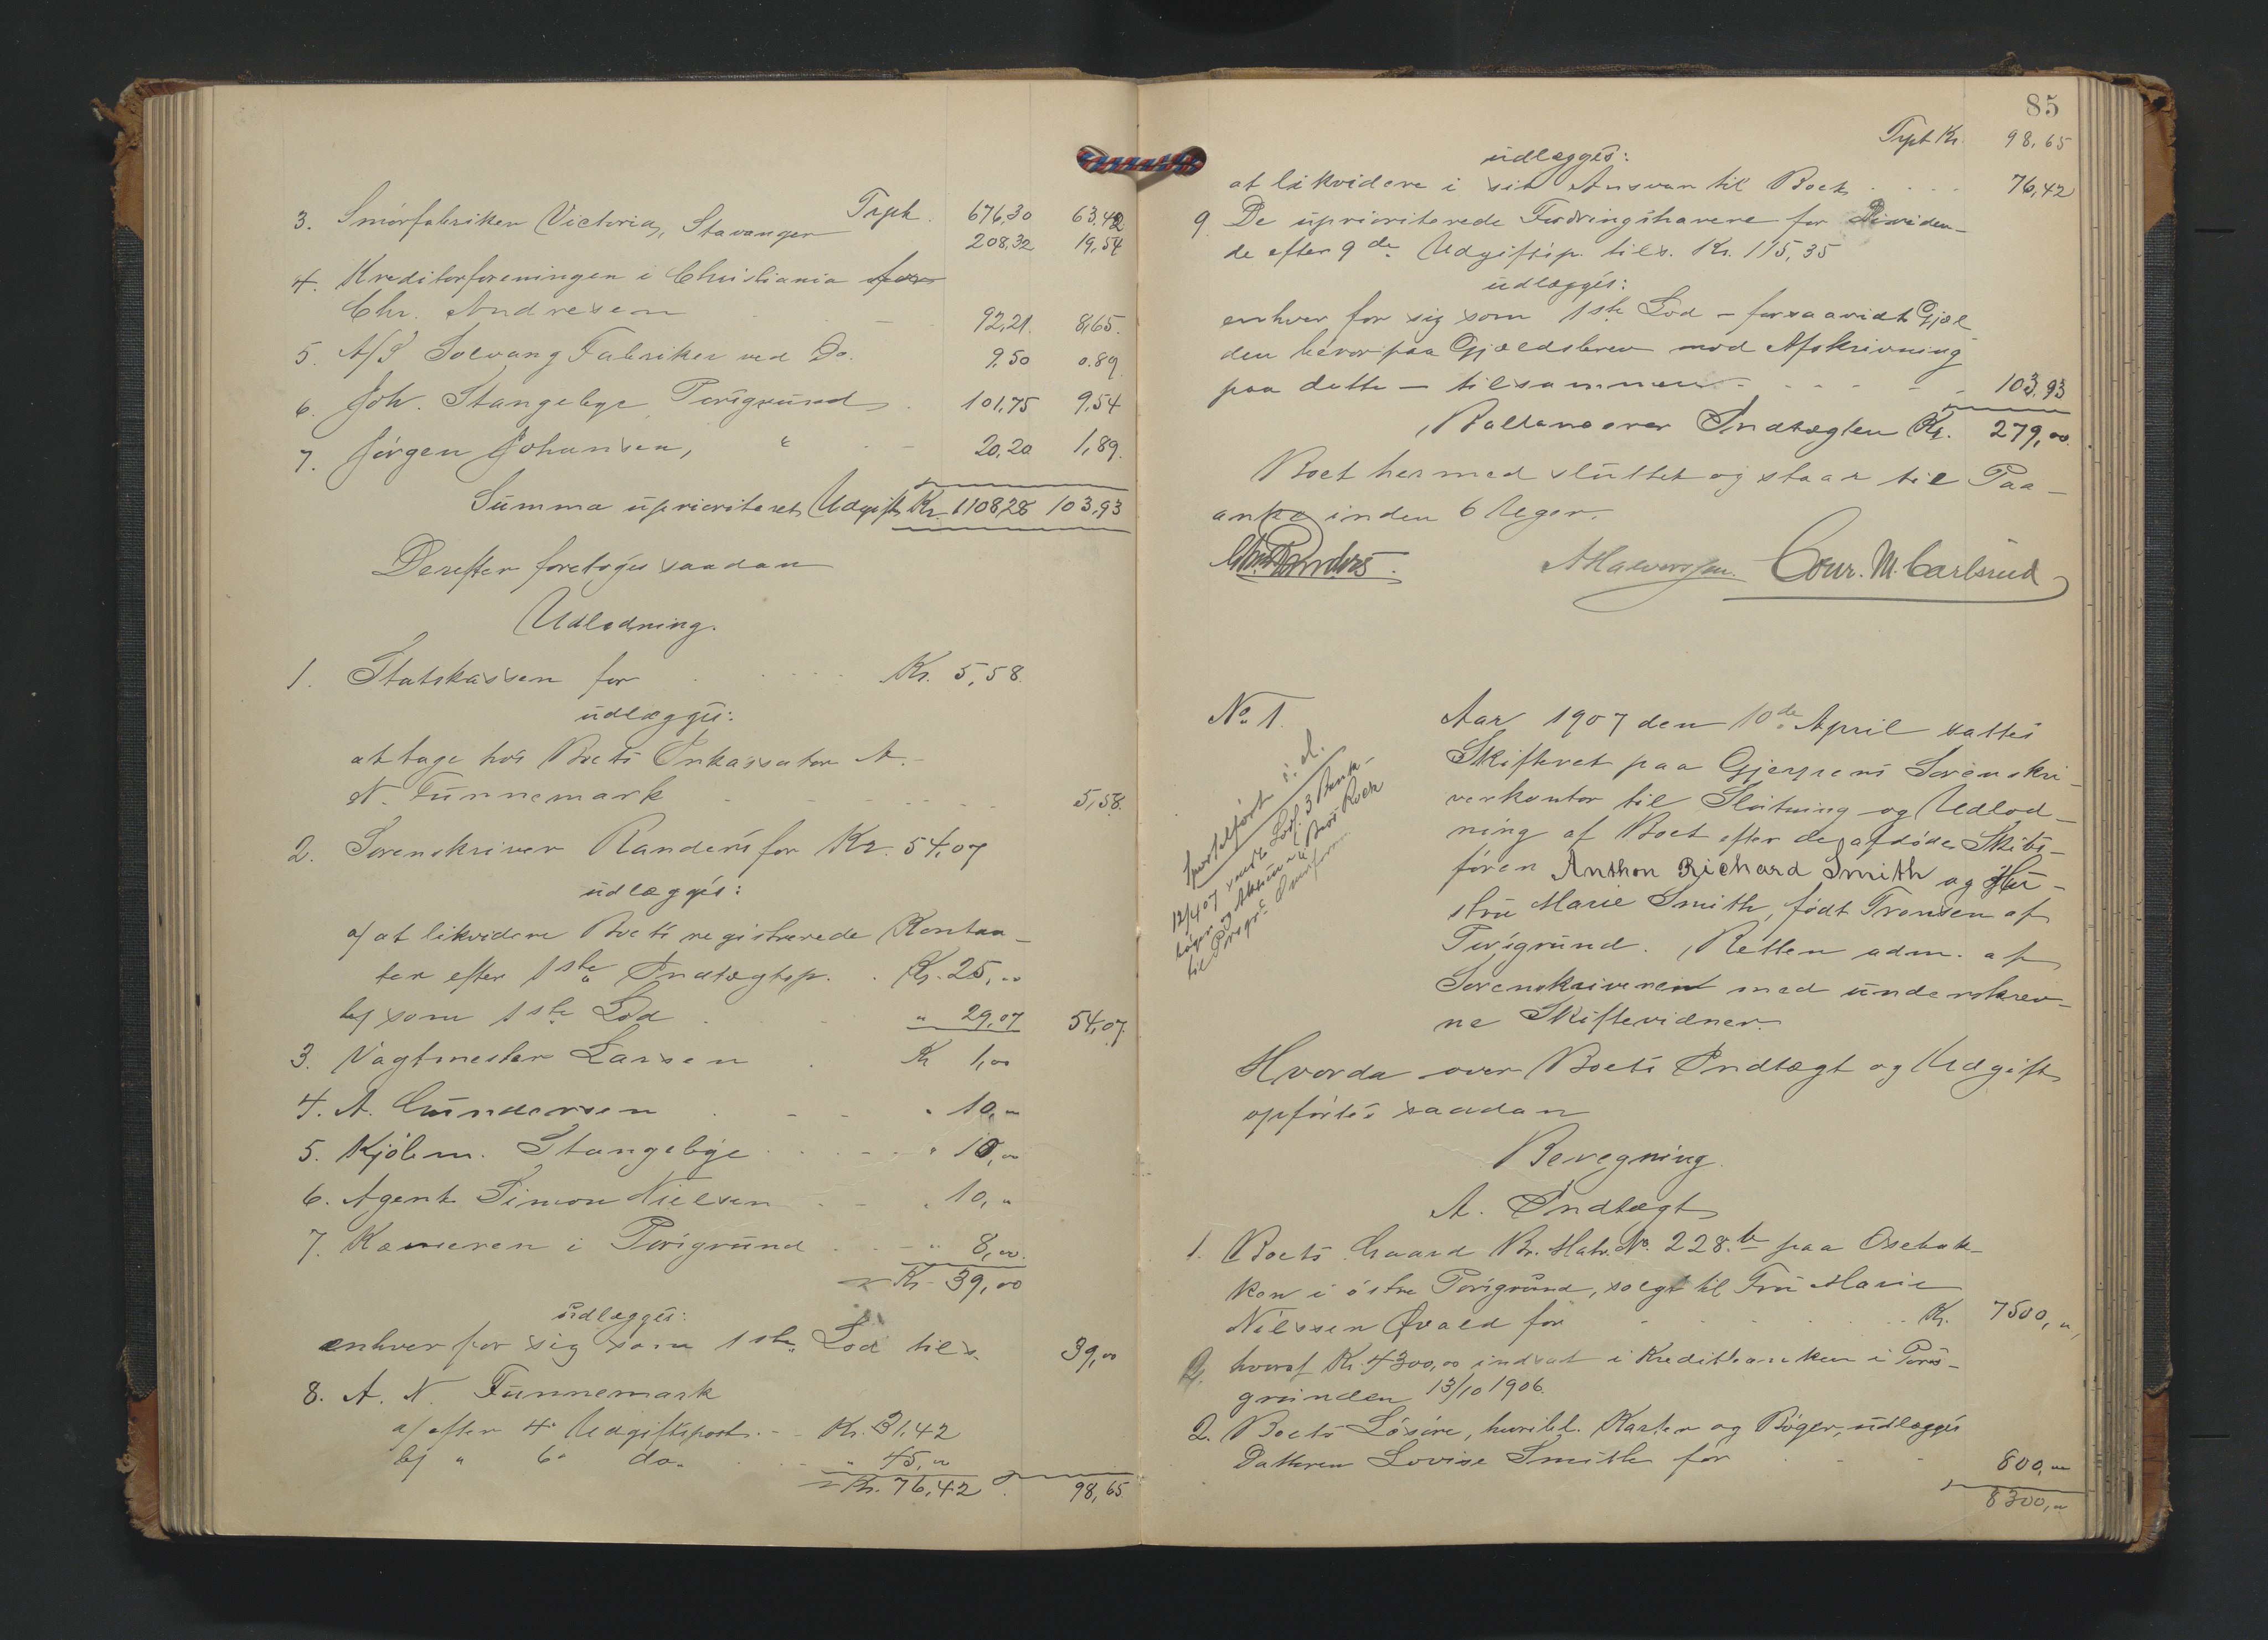 Trpt. 676,30 63.42
3. Smörfabriken Victoria, Stavanger 208,32 19,54
4. Kreditorforeningen i Christiania for
Chr. Andresen 92,21. 8,65.
5. A/S Solvang Fabriker ved Do. 9,50 0.89
6. Joh. Stangebye, Porsgrund 101,75 9,54
7. Jörgen Johansen, " 20,20 1,89.
Summa uprioriteret Udgift Kr. 1108,28 103,93
Derefter foretoges saadan
Udlodning.
1. Statskassen for Kr. 5,58
udlægges:
at tage hos Boets Inkassator A.
N. Funnemark 5,58.
2. Sorenskriver Randers for Kr. 54,07
udlægges:
a/ at likvidere Boets registrerede Kontan-
ter efter 1ste Indtægtsp. Kr. 25,00
b/ som 1ste Lod " 29,07 54,07.
3. Vagtmester Larsen Kr 1,00
4. A. Gundersen " 10,00
5. Kjöbm. Stangebye " 10,00
6. Agent Simon Nielsen " 10,"
7. Kæmneren i Porsgrund " 8,00.
= Kr. 39,00
udlægges:
enhver for sig som 1ste Lod tils. 39,00
8. A. N. Funnemark
a/ efter 4° Udgiftspost Kr. 31,42
b/ " 6° do. " 45,00
= Kr. 76,42 98,65
85
Trpt Kr. 98,65
udlægges:
at likvidere i sit Ansvar til Boet 76,42
9. De uprioriterede Fordringshavere for Dividen-
de efter 9de Udgiftsp. tils. Kr. 115,35
udlægges:
enhver for sig som 1ste Lod - forsaavidt Gjæl
den beror paa Gjældsbrev mod Afskrivning
paa dette - tilsammen 103,93
Ballancerer Indtægten Kr. 279,00.
Boet hermed sluttet og staar til Paa-
anke inden 6 Uger.
Chr. Randers. A Halvorsen. Cour. M. Carlsrud
No. 1.
Sportelført i. d.
12/4 07 sendte Losf. 3 Bank-
til Porsgr.
Aar 1907 den 10de April sattes
Skifteret paa Gjerpens Sorenskri-
verkontor til Slutning og Udlod-
ning af Boet efter de afdöde Skibs-
fören Anthon Richard Smith og Hu-
stru Marie Smith, födt Tronsen af
Porsgrund. Retten adm. af
Sorenskriveren med underskrev-
ne Skiftevidner.
Hvorda over Boets Indtægt og Udgift
opförtes saadan
Beregning
A. Indtægt
1. Boets Gaard Br. Matr. No. 228.b paa Osebak-
ken i östre Porsgrund, solgt til Fru Marie
Nilssen Øvald for Kr. 7500,"
hvoraf Kr. 4300,00 indsat i Kreditbanken i Pors-
grunden 13/10 1906.
2. Boets Lösöre, huribl. Karter og Böger, udlægges
Datteren Lovise Smith for 800,00
8300,"